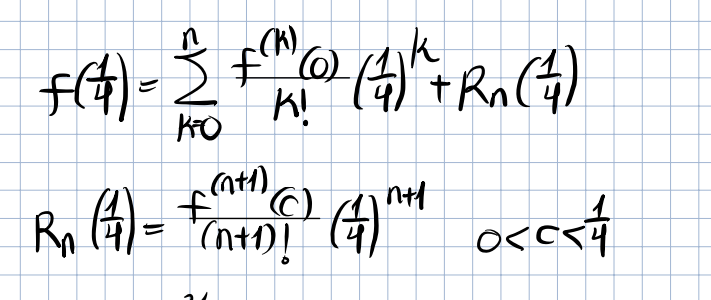 f(1/4) = ∑_{k=0}^{n} f^{(k)}(0)/k! (1/4)^k + R_n(1/4)
R_n(1/4) = f^{(n+1)}(c)/(n+1)! (1/4)^{n+1} 0<c<1/4